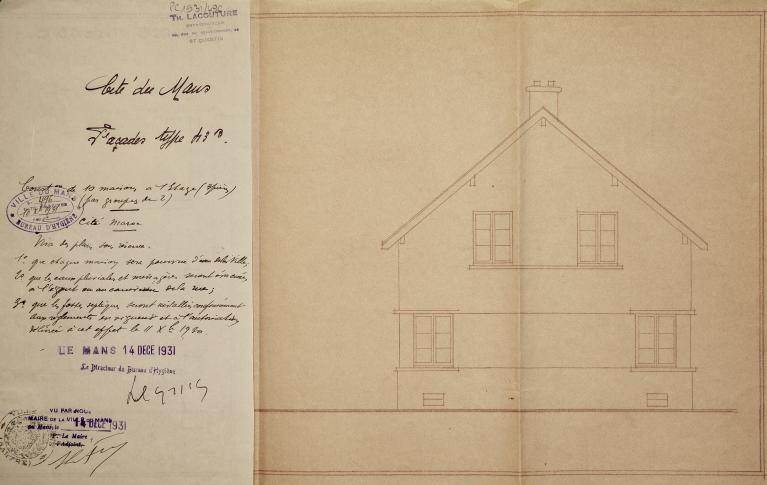 PC 1931/496
TH. LACOUTURE
ST QUENTIN
Cité du Maus
Façades type 43 B.
Const on de 10 maisons à 1 Etage
(par groupes de 2)
Cité
VILLE DU MANS
BUREAU D'HYGIÈNE
Visa des plans sous réserve.
1° que chaque maison sera pourvue d'eau de la Ville,
2° que les eaux pluviales et ménagères seront
à l'égout ou au caniveau de la rue;
3° que les fosses septiques seront installées conformément
aux règlements en vigueur et à l'autorisation
délivrée à cet effet le 11 X bre
LE MANS 14 DECE 1931
Le Directeur du Bureau d'Hygiène
VU PAR NOUS
MAIRE DE LA VILLE DU MANS
au Mans, le 14 DECE 1931
P. Le Maire
l'Adjoint,